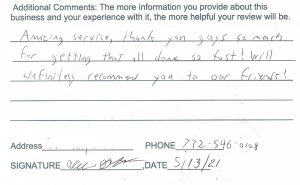 Additional Comments: The more information you provide about this
business and your experience with it, the more helpful your review will be.
Amazing service, thank you guys so much
for getting that all done so fast! Will
definitely recommend you to our friends!
Address
PHONE 732-546-0128
SIGNATURE DATE 5/13/21